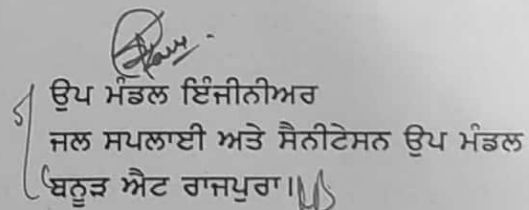 ਉਪ ਮੰਡਲ ਇੰਜੀਨੀਅਰ
ਜਲ ਸਪਲਾਈ ਅਤੇ ਸੈਨੀਟੇਸਨ ਉਪ ਮੰਡਲ
ਬਨੂੜ ਐਟ ਰਾਜਪੁਰਾ।